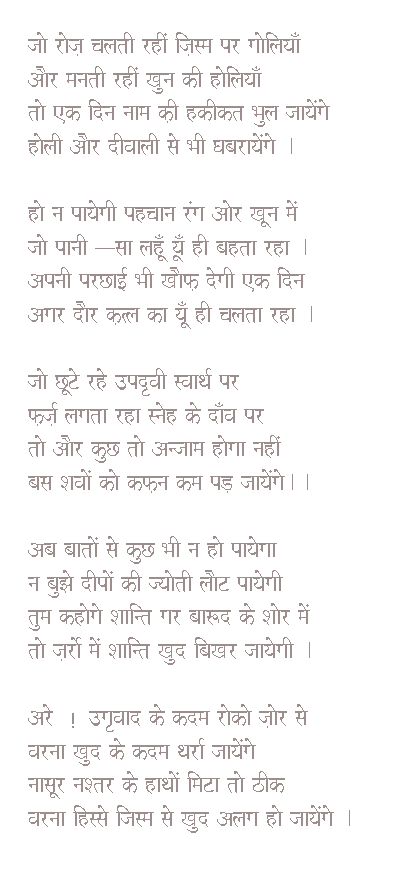 जो रोज़ चलती रहीं ज़िस्म पर गोलियाँ
और मनती रहीं खुन की होलियाँ
तो एक दिन नाम की हकीकत भुल जायेंगे
होली और दीवाली से भी घबरायेंगे |
हो न पायेगी पहचान रंग ओर खून में
जो पानी —सा लहूँ यूँ ही बहता रहा |
अपनी परछाई भी खौफ़ देगी एक दिन
अगर दौर क़त्ल का यूँ ही चलता रहा |
जो छूटे रहे उपदृवी स्वार्थ पर
फ़र्ज़ लगता रहा स्नेह के दाँव पर
तो और कुछ तो अन्जाम होगा नहीं
बस शवों को कफ़न कम पड़ जायेंगे||
अब बातों से कुछ भी न हो पायेगा
न बुझे दीपों की ज्योती लौट पायेगी
तुम कहोगे शान्ति गर बारूद के शोर में
तो ज़र्रो में शान्ति खुद बिखर जायेगी |
अरे ! उगृवाद के कदम रोको ज़ोर से
वरना खुद के कदम थर्रा जायेंगे
नासूर नश्तर के हाथों मिटा तो ठीक
वरना हिस्से जिस्म से खुद अलग हो जायेंगे |